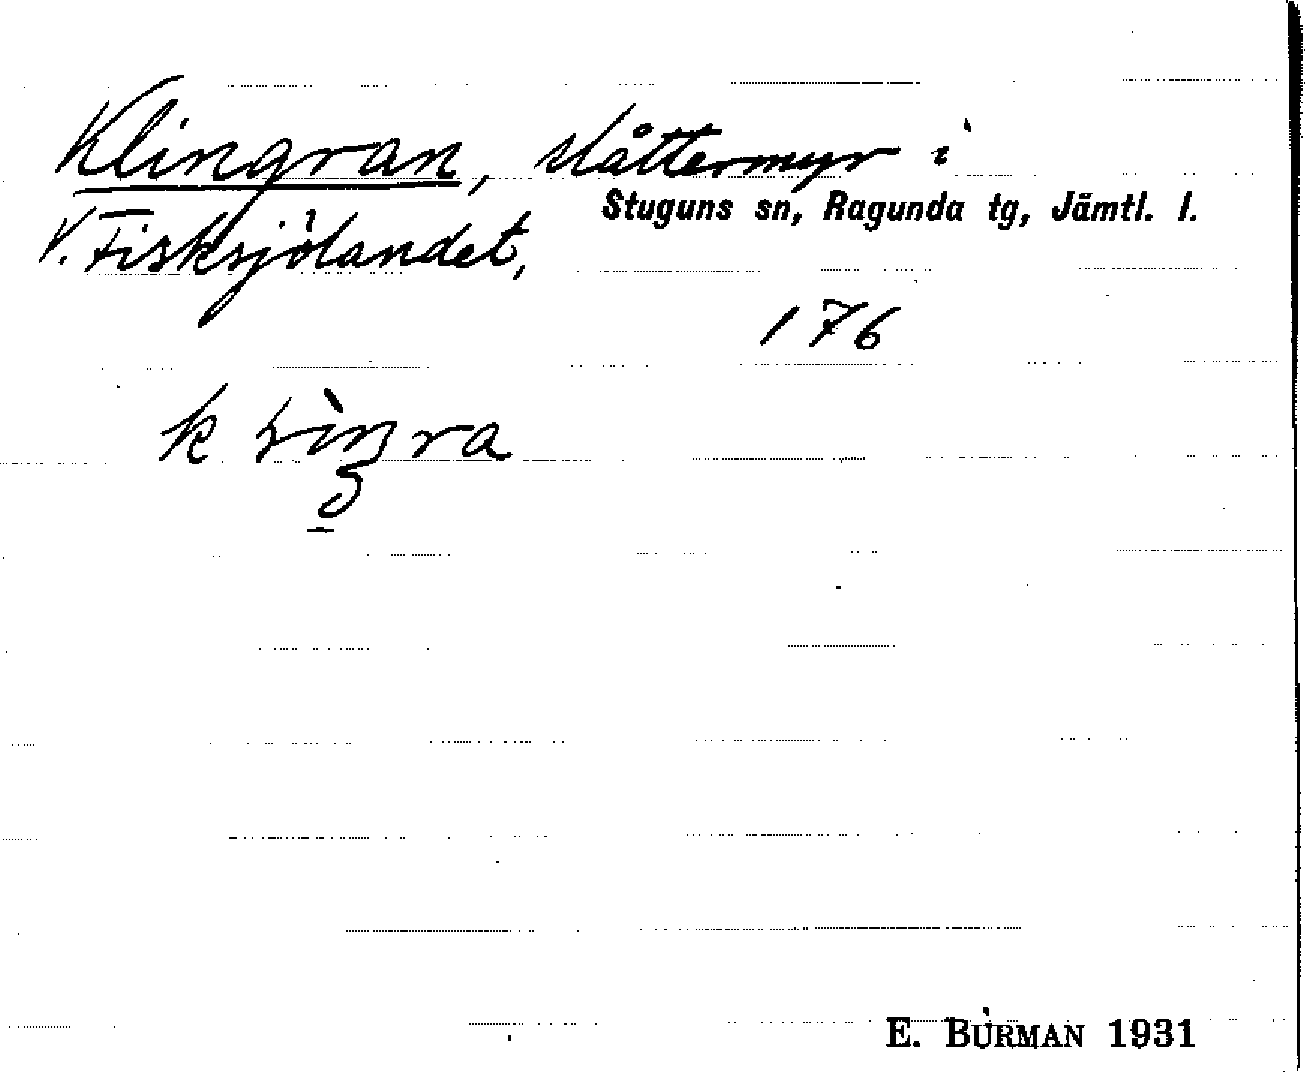 Klingran, slåttermyr i
Stuguns sn, Ragunda tg, Jämtl. l.
V. Fisksjölandet,
176
E. BURMAN 1931